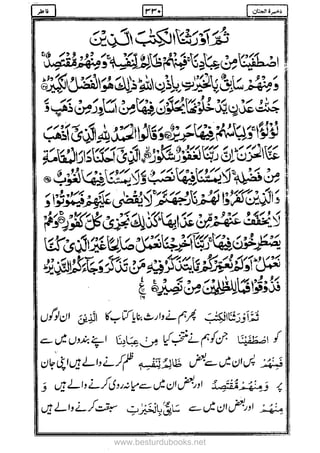 ذخیرة الجنان ٣٣٠ فاطر
ثُمَّ اَوْرَثْنَا الْكِتٰبَ الَّذِیْنَ
اصْطَفَیْنَا مِنْ عِبَادِنَا فَمِنْهُمْ ظَالِمٌ لِّنَفْسِهٖ وَمِنْهُمْ مُّقْتَصِدٌ
وَمِنْهُمْ سَابِقٌۢ بِالْخَیْرٰتِ بِاِذْنِ اللهِ ذٰلِكَ هُوَ الْفَضْلُ الْكَبِیْرُ
جَنّٰتُ عَدْنٍ یَّدْخُلُوْنَهَا یُحَلَّوْنَ فِیْهَا مِنْ اَسَاوِرَ مِنْ ذَهَبٍ وَّ
لُؤْلُؤًا وَلِبَاسُهُمْ فِیْهَا حَرِیْرٌ وَقَالُوا الْحَمْدُ لِلهِ الَّذِیْۤ اَذْهَبَ
عَنَّا الْحَزَنَ اِنَّ رَبَّنَا لَغَفُوْرٌ شَكُوْرُ الَّذِیْۤ اَحَلَّنَا دَارَ الْمُقَامَةِ
مِنْ فَضْلِهٖ لَا یَمَسُّنَا فِیْهَا نَصَبٌ وَّلَا یَمَسُّنَا فِیْهَا لُغُوْبٌ
وَالَّذِیْنَ كَفَرُوْا لَهُمْ نَارُ جَهَنَّمَ لَا یُقْضٰی عَلَیْهِمْ فَیَمُوْتُوْا وَ
لَا یُخَفَّفُ عَنْهُمْ مِّنْ عَذَابِهَا كَذٰلِكَ نَجْزِیْ كُلَّ كَفُوْرٍ وَهُمْ
یَصْطَرِخُوْنَ فِیْهَا رَبَّنَاۤ اَخْرِجْنَا نَعْمَلْ صَالِحًا غَیْرَ الَّذِیْ كُنَّا
نَعْمَلُ اَوَلَمْ نُعَمِّرْكُمْ مَّا یَتَذَكَّرُ فِیْهِ مَنْ تَذَكَّرَ وَجَآءَكُمُ النَّذِیْرُ
فَذُوْقُوْا فَمَا لِلظّٰلِمِیْنَ مِنْ نَّصِیْرٍ
ثُمَّ اَوْرَثْنَا الْكِتٰبَ پھر ہم نے وارث بنایا کتاب کا الَّذِیْنَ ان لوگوں
کو اصْطَفَیْنَا جن کو ہم نے منتخب کیا مِنْ عِبَادِنَا اپنے بندوں میں سے
فَمِنْهُمْ پس ان میں سے بعض ظَالِمٌ لِّنَفْسِهٖ ظلم کرنے والے ہیں اپنی جان
پر وَمِنْهُمْ مُّقْتَصِدٌ اور بعض ان میں سے میانہ روی کرنے والے ہیں وَ
مِنْهُمْ اور بعض ان میں سے سَابِقٌۢ بِالْخَیْرٰتِ سبقت کرنے والے ہیں
www.besturdubooks.net